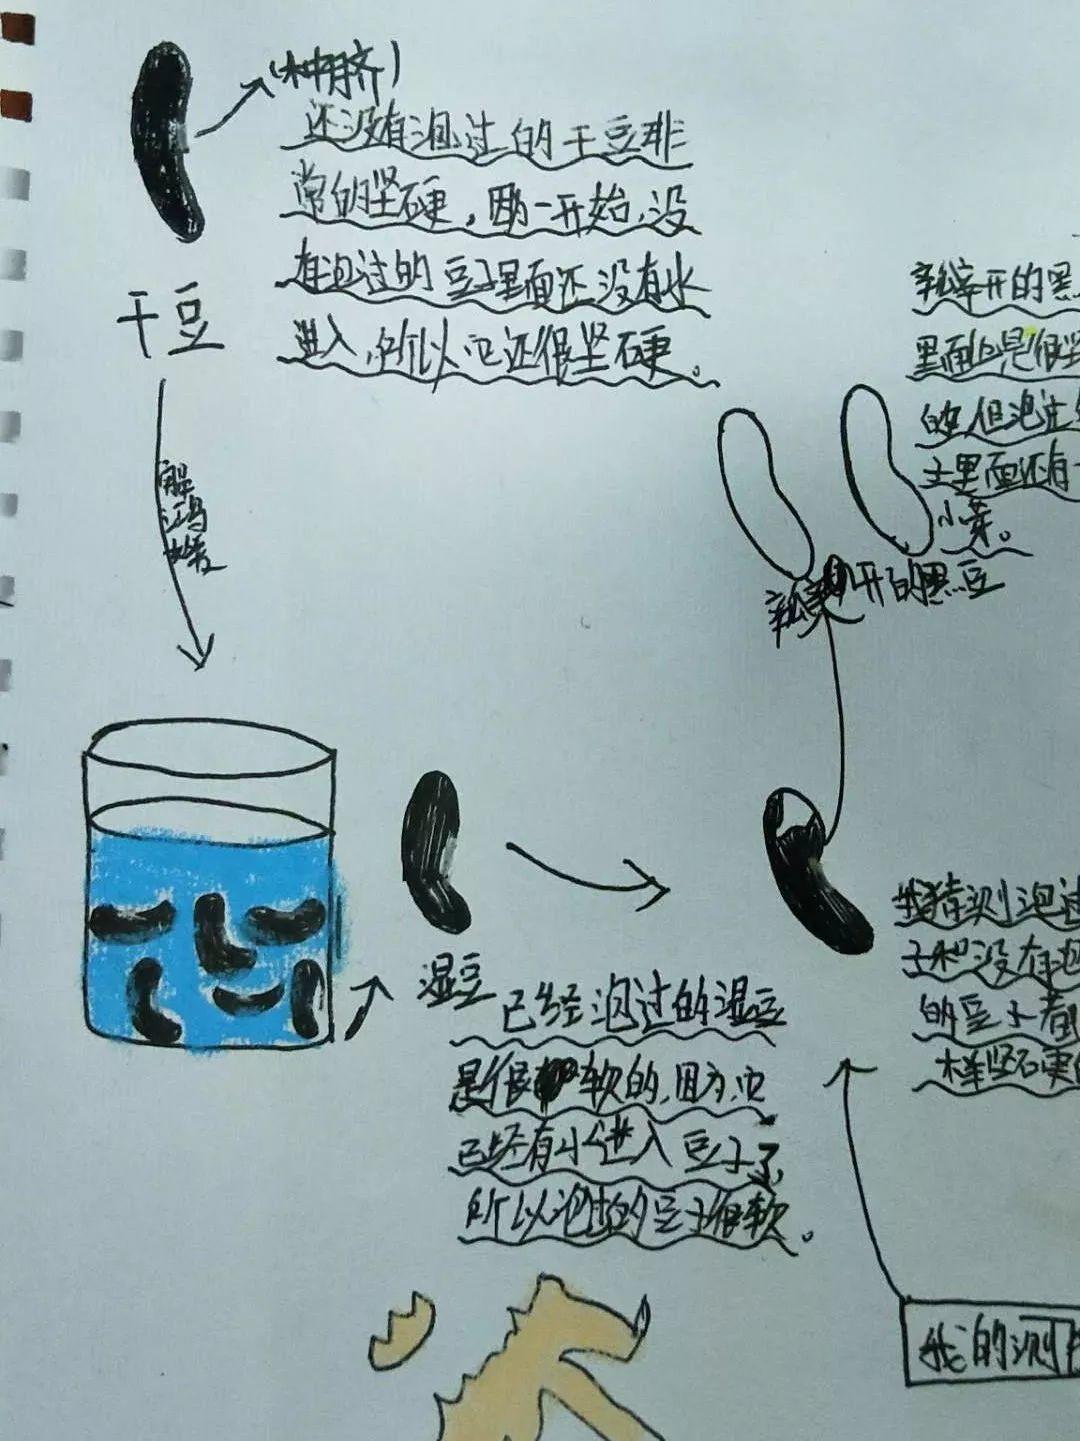 (种脐)
还没有泡过的干豆非
常的坚硬，因为一开始，没
有泡过的豆子里面还没有水
进入，所以它还很坚硬。
干豆
解
辨开的黑
里面也是很坚
的但泡过
子里面还有一
小芽。
开的黑豆
湿豆
已经泡过的湿豆
是很软的，因为它
已经有水进入豆子了，
所以泡过的豆子很软。
我猜测泡过
子和没有泡
的豆子都
样坚硬的
我的测